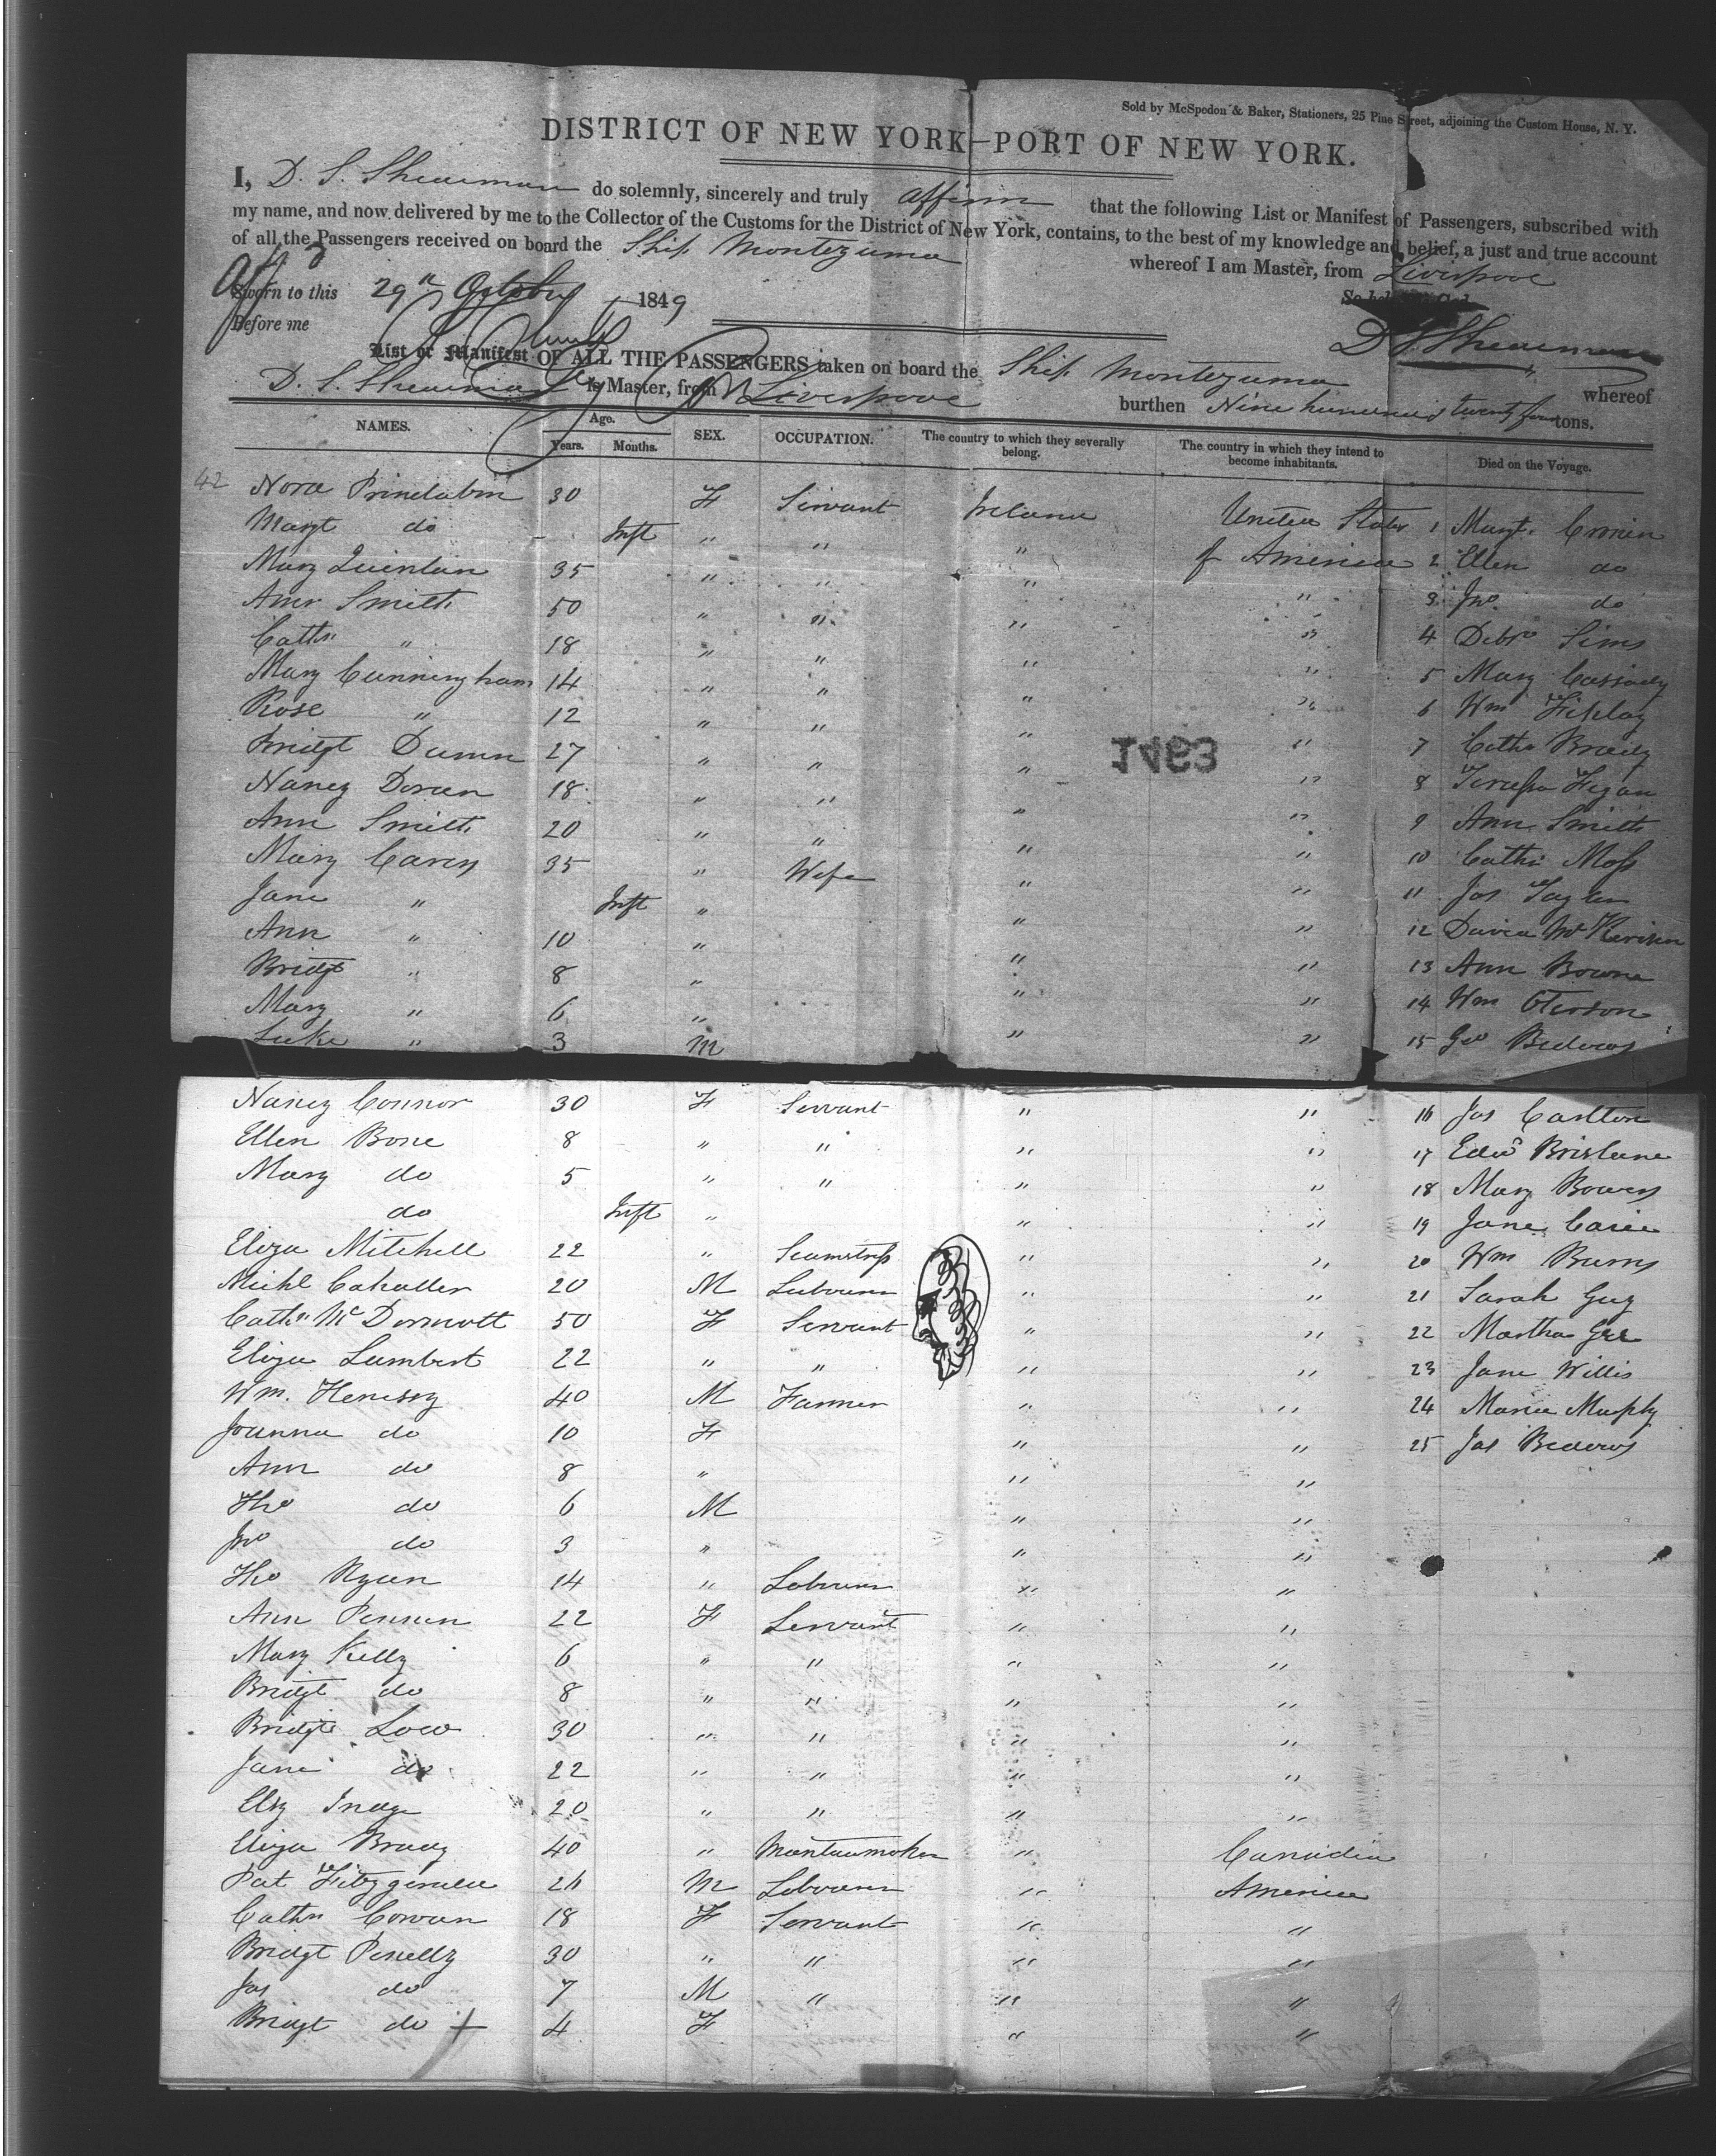 Sold by McSpedon & Baker, Stationers, 25 Pine Street, adjoining the Custom House, N. Y.
DISTRICT OF NEW YORK—PORT OF NEW YORK.
I, D. S. Shearman do solemnly, sincerely and truly affirm that the following List or Manifest of Passengers, subscribed with
my name, and now delivered by me to the Collector of the Customs for the District of New York, contains, to the best of my knowledge and belief, a just and true account
of all the Passengers received on board the Ship Montezuma whereof I am Master, from Liverpool
Sworn to this 29th October 1849 So help me God.
Before me D S Shearman
List or Manifest OF ALL THE PASSENGERS taken on board the Ship Montezuma whereof
D. S. Shearman is Master, from Liverpool burthen Nine hundred twenty four tons.
NAMES. Age. Years. Months. SEX. OCCUPATION. The country to which they severally belong. The country in which they intend to become inhabitants. Died on the Voyage.
42 Nora 30 F Servant Ireland United States 1 Margt. Cronin
Margt do - Inft " " " of America 2 Ellen do
Mary Quinlan 35 " " " " 3 Jno. do
Ann Smith 50 " " " " 4 Debro Sims
Cathn " 18 " " " " 5 Mary Cassady
Mary Cunningham 14 " " " " 6 Wm
Rose " 12 " " " " 7 Cathn Brady
Bridgt Dunn 27 " " " " 8 Fegan
Nancy Doran 18 " " " " 9 Ann Smith
Ann Smith 20 " " " " 10 Cathn Moss
Mary Carey 35 " Wife " " 11 Jas Taylor
Jane " Inft " " " 12 David
Ann " 10 " " " 13 Ann Bowne
Bridgt " 8 " " " 14 Wm
Mary " 6 " " "
Luke " 3 M " " 15 Geo Bedows
1463
Nancy Connor 30 F Servant " " 16 Jas Carlton
Ellen Bone 8 " " " " 17 Edwd Brislane
Mary do 5 " " " " 18 Mary Bowers
do Inft " " " 19 Jane Carie
Eliza Mitchell 22 " Seamstress " " 20 Wm Burns
Michl Cahallen 20 M Labourer " " 21 Sarah Guy
Cathn McDermott 50 F Servant " " 22 Martha Gee
Eliza Lambert 22 " " " " 23 Jane Willis
Wm. Henessy 40 M Farmer " " 24 Maria Murphy
Joanna do 10 F " " 25 Jas Bedows
Ann do 8 " " "
Tho do 6 M " "
Jno do 3 " " "
Tho Ryan 14 " Labourer " "
Ann 22 F Servant " "
Mary Kelly 6 " " " "
Bridgt do 8 " " " "
Bridgt Low 30 " " " "
Jane do 22 " " " "
Eliz 20 " " " "
Eliza Brady 40 " Mantuamaker " Canadia
Pat Fitzgerald 26 M Labourer " America
Cathn Cowan 18 F Servant " "
Bridgt Penelly 30 " " " "
Jas do 7 M " " "
Bridgt do 4 F " "